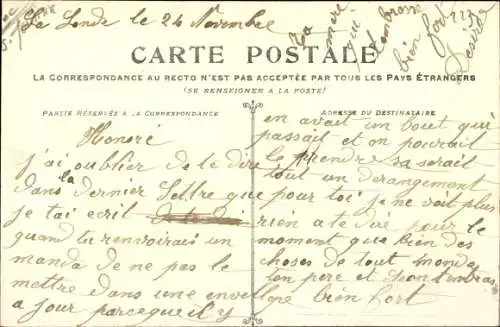 La Lande le 24 Novembre
CARTE POSTALE
LA CORRESPONDANCE AU RECTO N'EST PAS ACCEPTÉE PAR TOUS LES PAYS ÉTRANGERS
(SE RENSEIGNER A LA POSTE)
PARTIE RÉSERVÉE A LA CORRESPONDANCE
Honoré
j'ai oublier de te dire
dans la dernier lettre que
je tai ecrit
quand tu renvoirais un
manda de ne pas le
mettre dans une enveloppe
a jour parceque il y
ADRESSE DU DESTINATAIRE
en avait un bout qui
passait et on pourrait
le prendre sa serait
tout un derangement
pour toi je ne voit plus
rien a te dire pour le
moment que bien des
choses de tout monde
ton pere et
bien fort
Ta mere
qui
t'embrasse
bien fort
Desiré